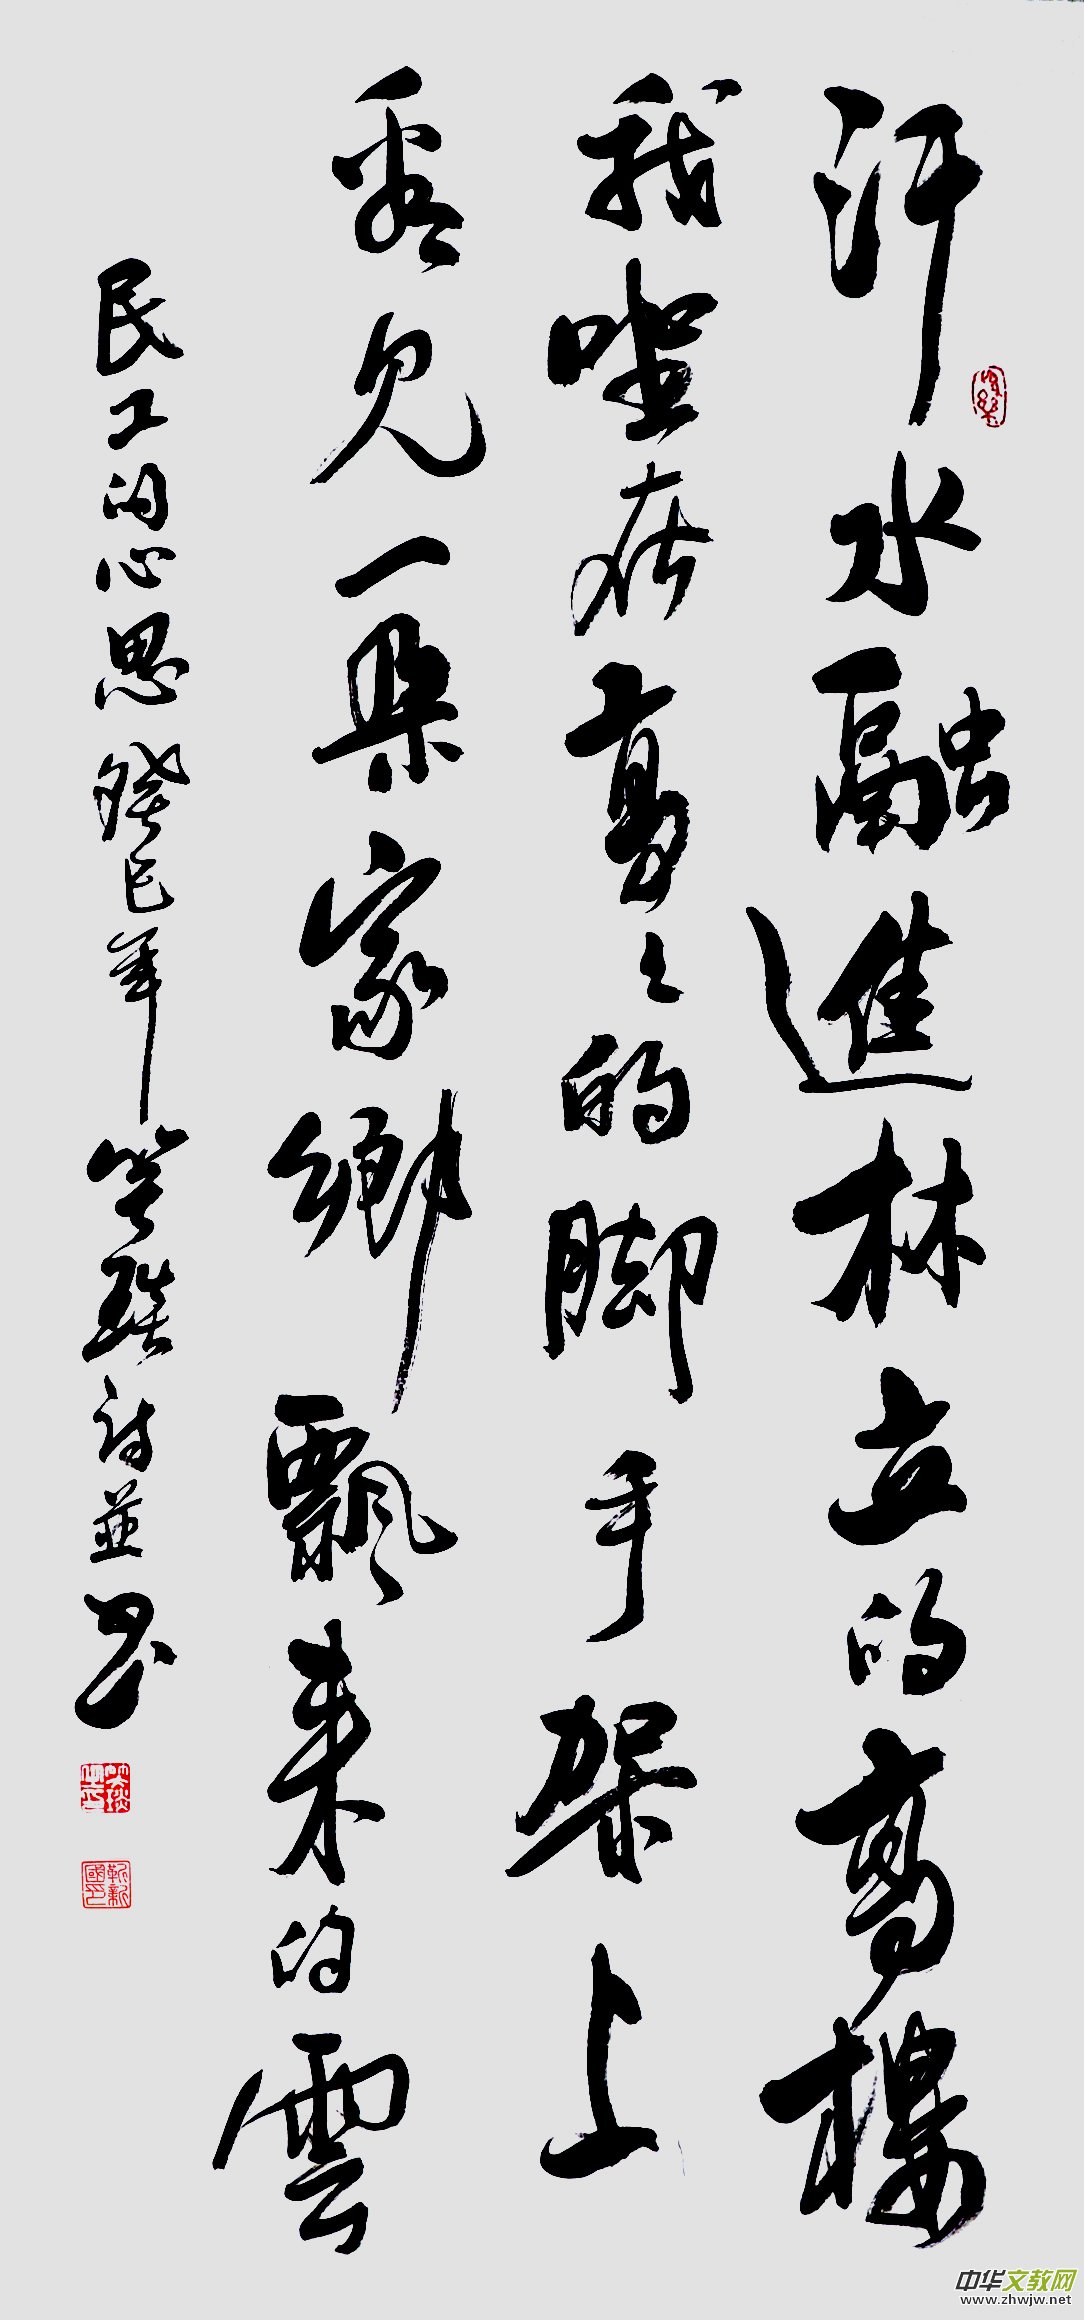 汗水融進林立的高樓
我坐在高〻的脚手架上
看見一朵家鄉飄来的雲
民工的心思 癸巳年 笑琰詩並書
靳新國印
中华文教网
www.zhwjw.net